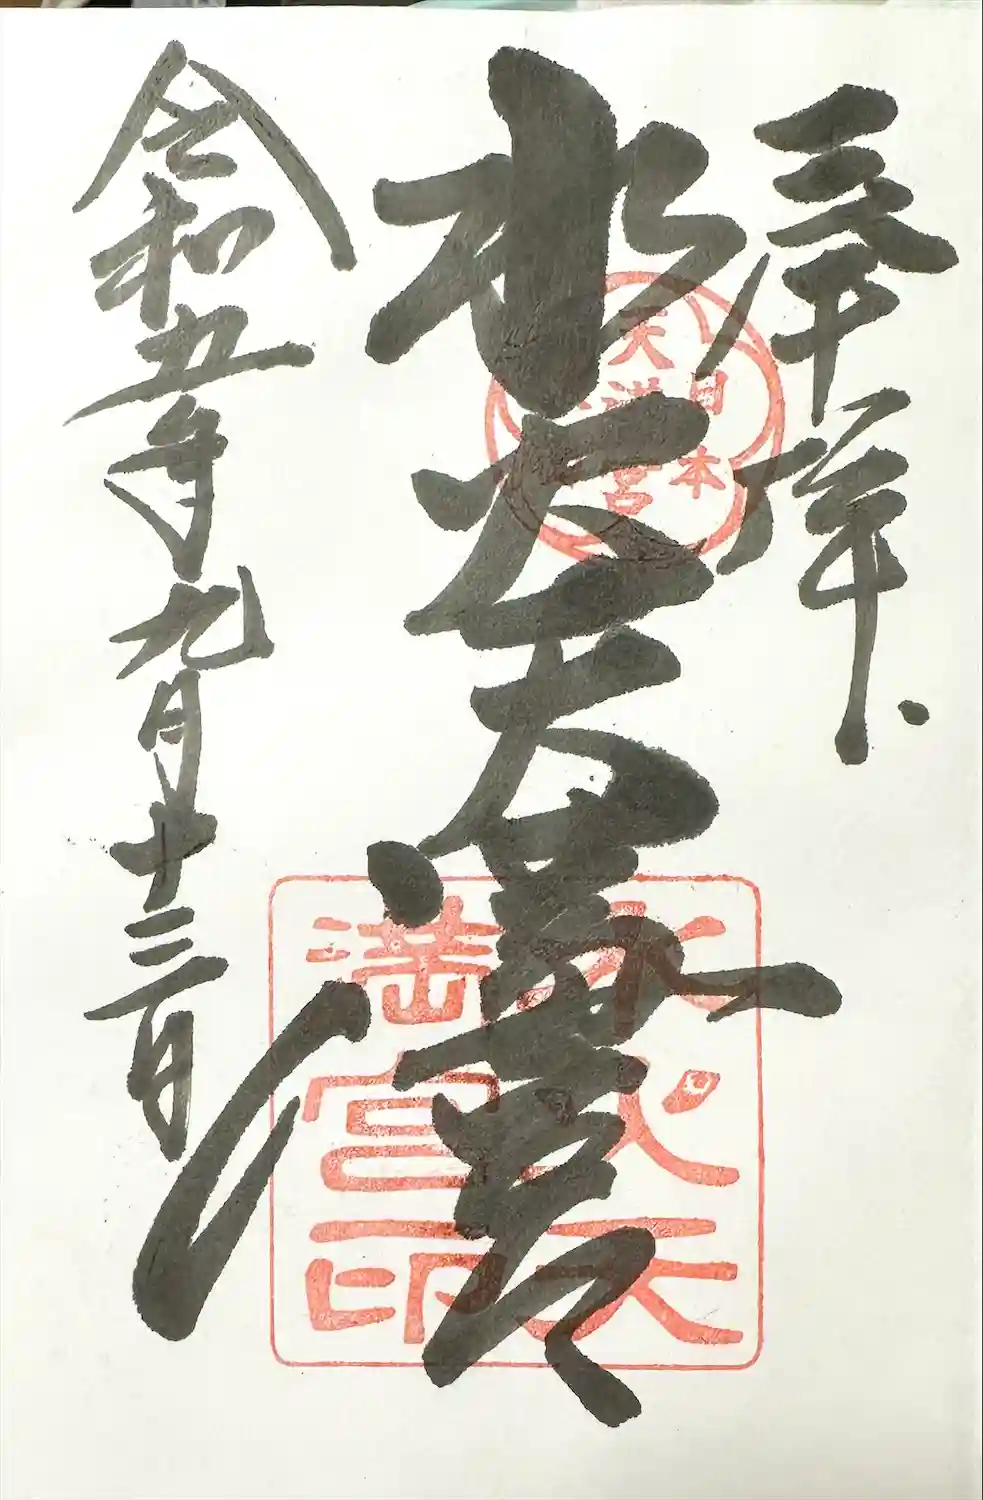 奉拝
水火天満宮
令和五年九月十三日
日本
天満宮
水火天
満宮印